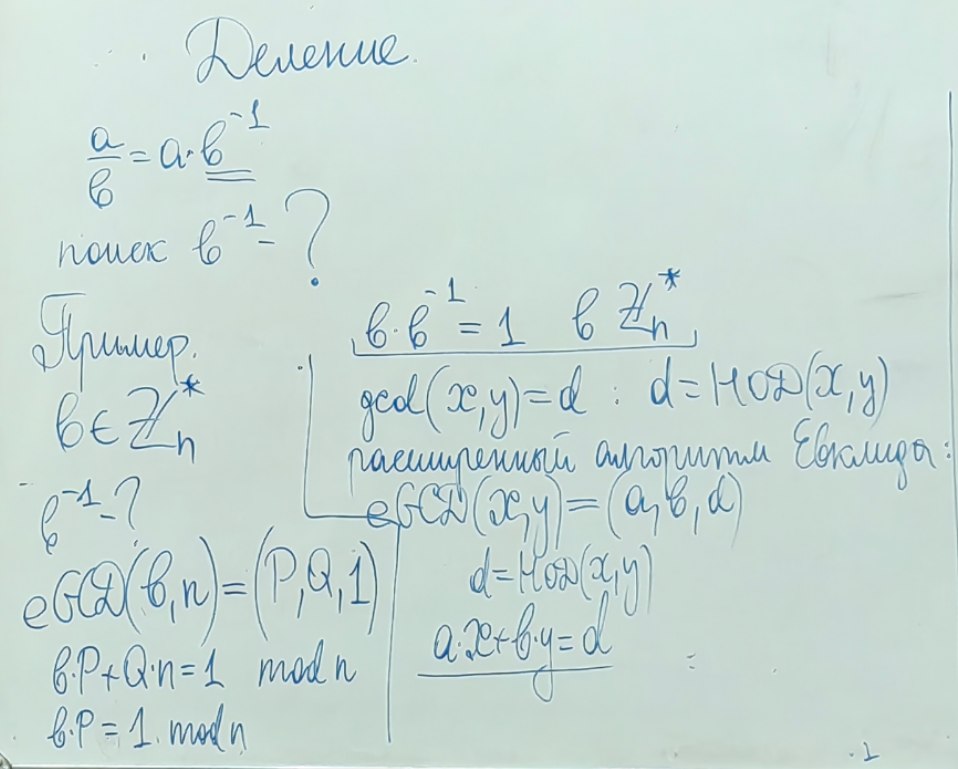 Деление.
a/b = a·b⁻¹
поиск b⁻¹ - ?
Пример.
b ∈ ℤₙ*
b⁻¹ - ?
eGCD(b, n) = (P, Q, 1)
b·P + Q·n = 1 mod n
b·P = 1 . mod n
b·b⁻¹ = 1 в ℤₙ*
gcd(x, y) = d : d = НОД(x, y)
расширенный алгоритм Евклида:
eGCD(x, y) = (a, b, d)
d = НОД(x, y)
a·x + b·y = d
=
.1